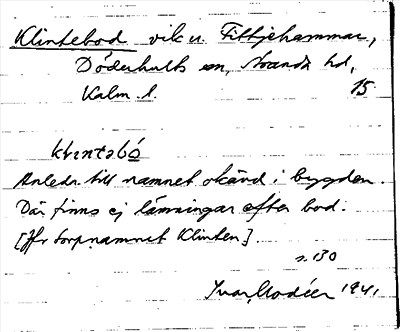 Klintebod vik u. Fittjehammar,
Döderhults sn, Stranda hd,
Kalm. l. 15
klıntəbó
Anledn. till namnet okänd i bygden.
Där finns ej lämningar efter bod.
[Jfr torpnamnet Klinten].
s. 130
Ivar Modéer 1941